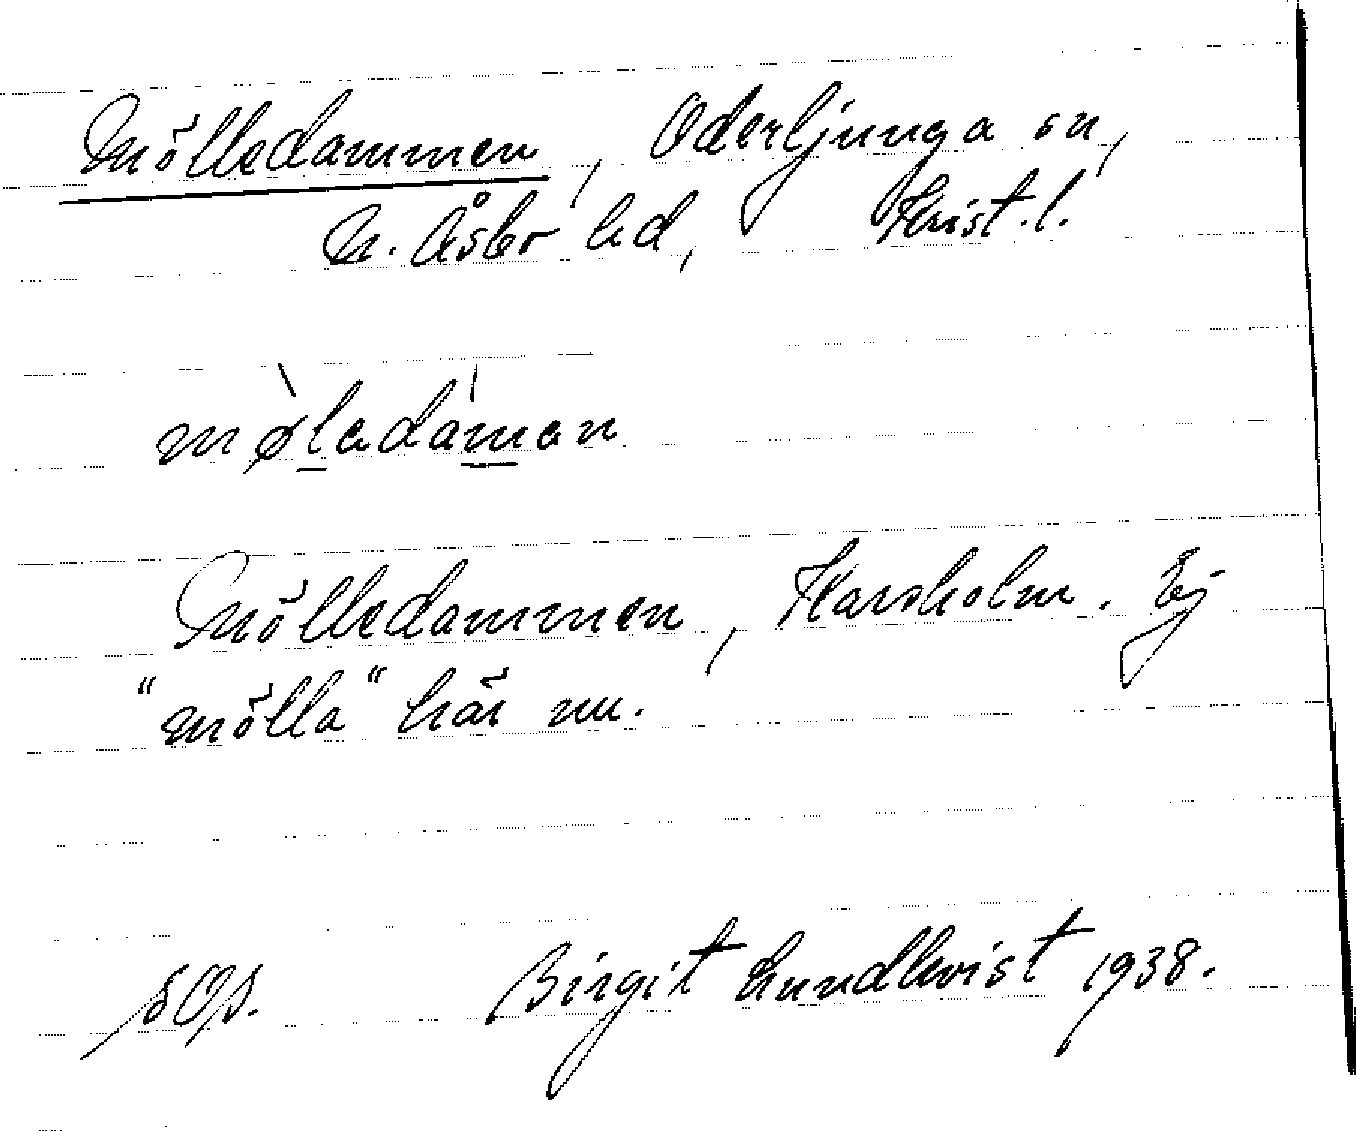 Mölledammen, Oderljunga sn,
N. Åsbo hd, Krist. l.
mø̀ladáman
Mölledammen, Karsholm. Ej
"mölla" här nu.
Birgit Lundkvist 1938.